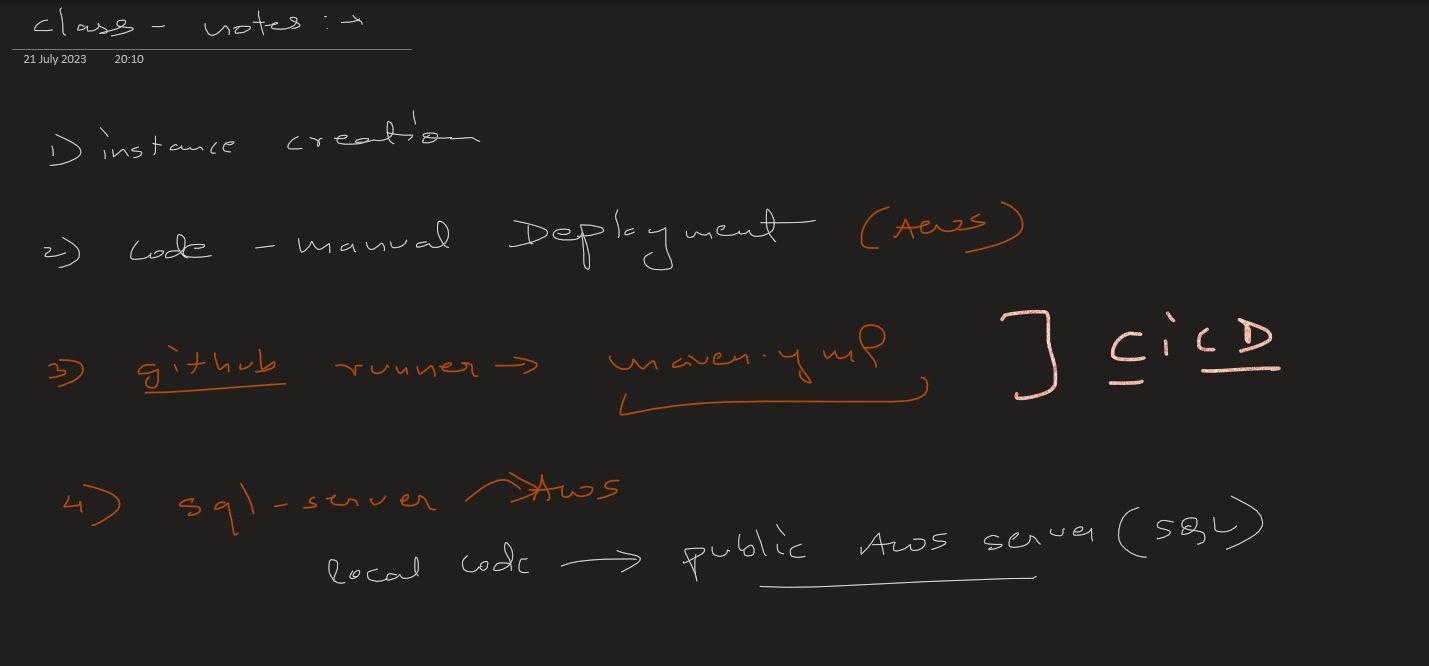 class - notes :→
21 July 2023 20:10
1) instance creation
2) code - manual Deployment (Aws)
3) github runner → maven.yml ] CiCD
4) sql-server → Aws
local code → public Aws server (SQL)